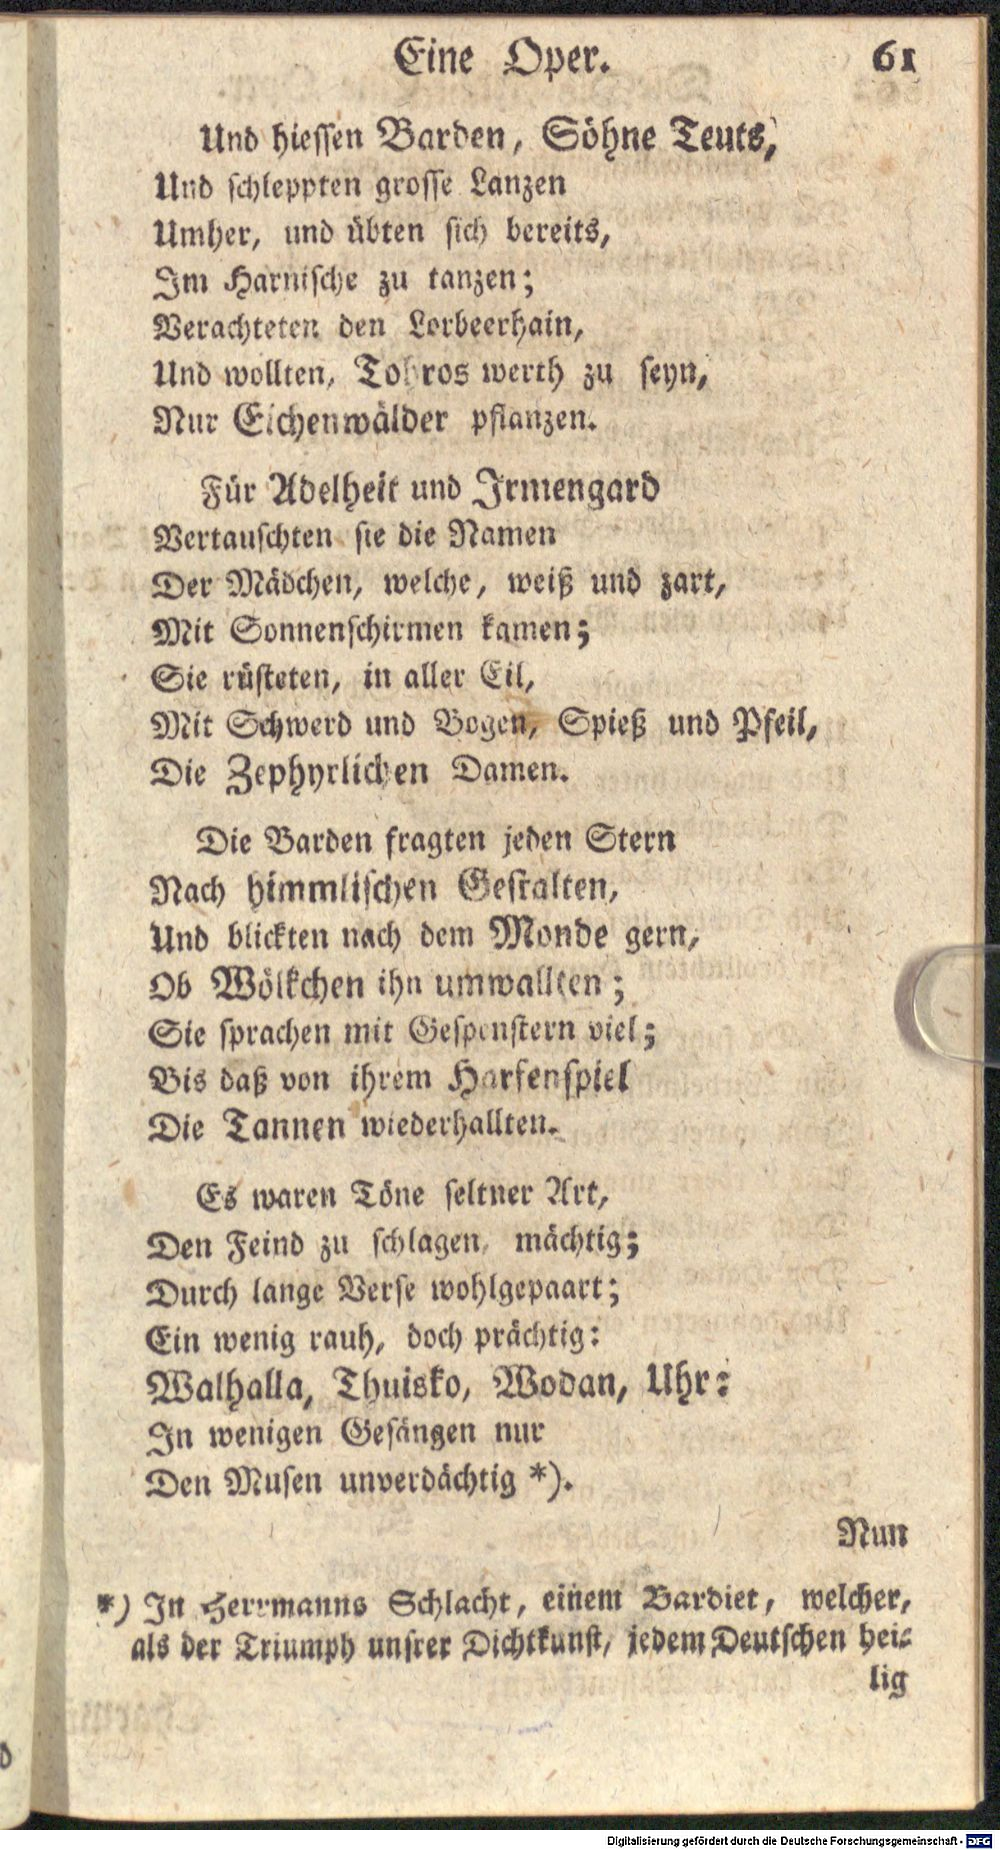 Eine Oper. 61
Und hiessen Barden, Söhne Teuts,
Und schleppten grosse Lanzen
Umher, und übten sich bereits,
Im Harnische zu tanzen;
Verachteten den Lorbeerhain,
Und wollten, Tobros werth zu seyn,
Nur Eichenwälder pflanzen.
Für Adelheit und Irmengard
Vertauschten sie die Namen
Der Mädchen, welche, weiß und zart,
Mit Sonnenschirmen kamen;
Sie rüsteten, in aller Eil,
Mit Schwerd und Bogen, Spieß und Pfeil,
Die Zephyrlichen Damen.
Die Barden fragten jeden Stern
Nach himmlischen Gestalten,
Und blickten nach dem Monde gern,
Ob Wölkchen ihn umwallten;
Sie sprachen mit Gespenstern viel;
Bis daß von ihrem Harfenspiel
Die Tannen wiederhallten.
Es waren Töne seltner Art,
Den Feind zu schlagen, mächtig;
Durch lange Verse wohlgepaart;
Ein wenig rauh, doch prächtig:
Walhalla, Thuisko, Wodan, Uhr:
In wenigen Gesängen nur
Den Musen unverdächtig *).
Nun
*) In Herrmanns Schlacht, einem Bardiet, welcher,
als der Triumph unsrer Dichtkunst, jedem Deutschen hei-
lig
Digitalisierung gefördert durch die Deutsche Forschungsgemeinschaft - DFG